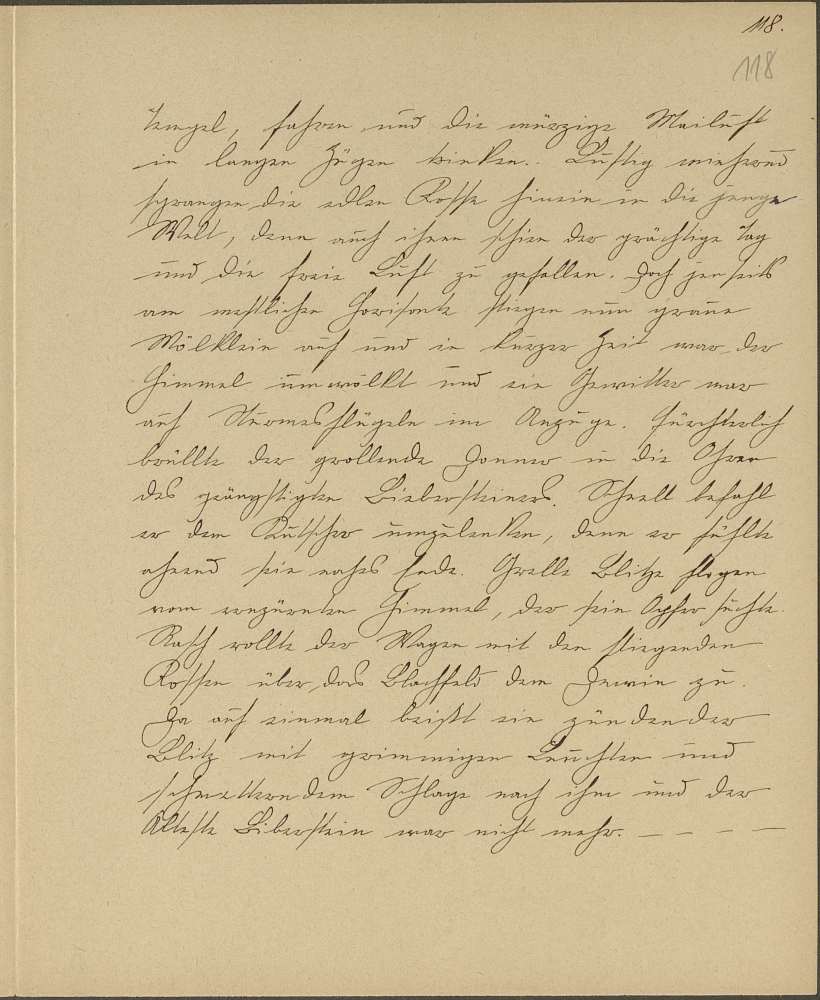 118.
118
Tempel, fahren und die würzige Mailuft
in langen Zügen trinken.. Lustig wiehernd
sprangen die edlen Rosse hinein in die junge
Welt, denn auch ihnen schien der prächtige Tag
und die freie Luft zu gefallen. Doch jenseits
am westlichen Horisonte stiegen nun graue
Wölklein auf und in kurzer Zeit war der
Himmel umwölkt und ein Gewitter war
auf Sturmesflügeln im Anzuge. Fürchterlich
brüllte der grollende Donner in die Ohren
des geängstigten Biebersteiners. Schnell befahl
er dem Kutscher umzulenken, denn er fühlte
ahnend sein nahes Ende. Grelle Blitze flogen
vom erzürnten Himmel, der sein Opfer suchte.
Rasch rollte der Wagen mit den fliegenden
Rossen über das Blachfeld dem zu.
Da auf einmal beißt ein zündender
Blitz mit grimmigen Leuchten und
schmetterndem Schlage nach ihm und der
Älteste Biberstein war nicht mehr. – – – –